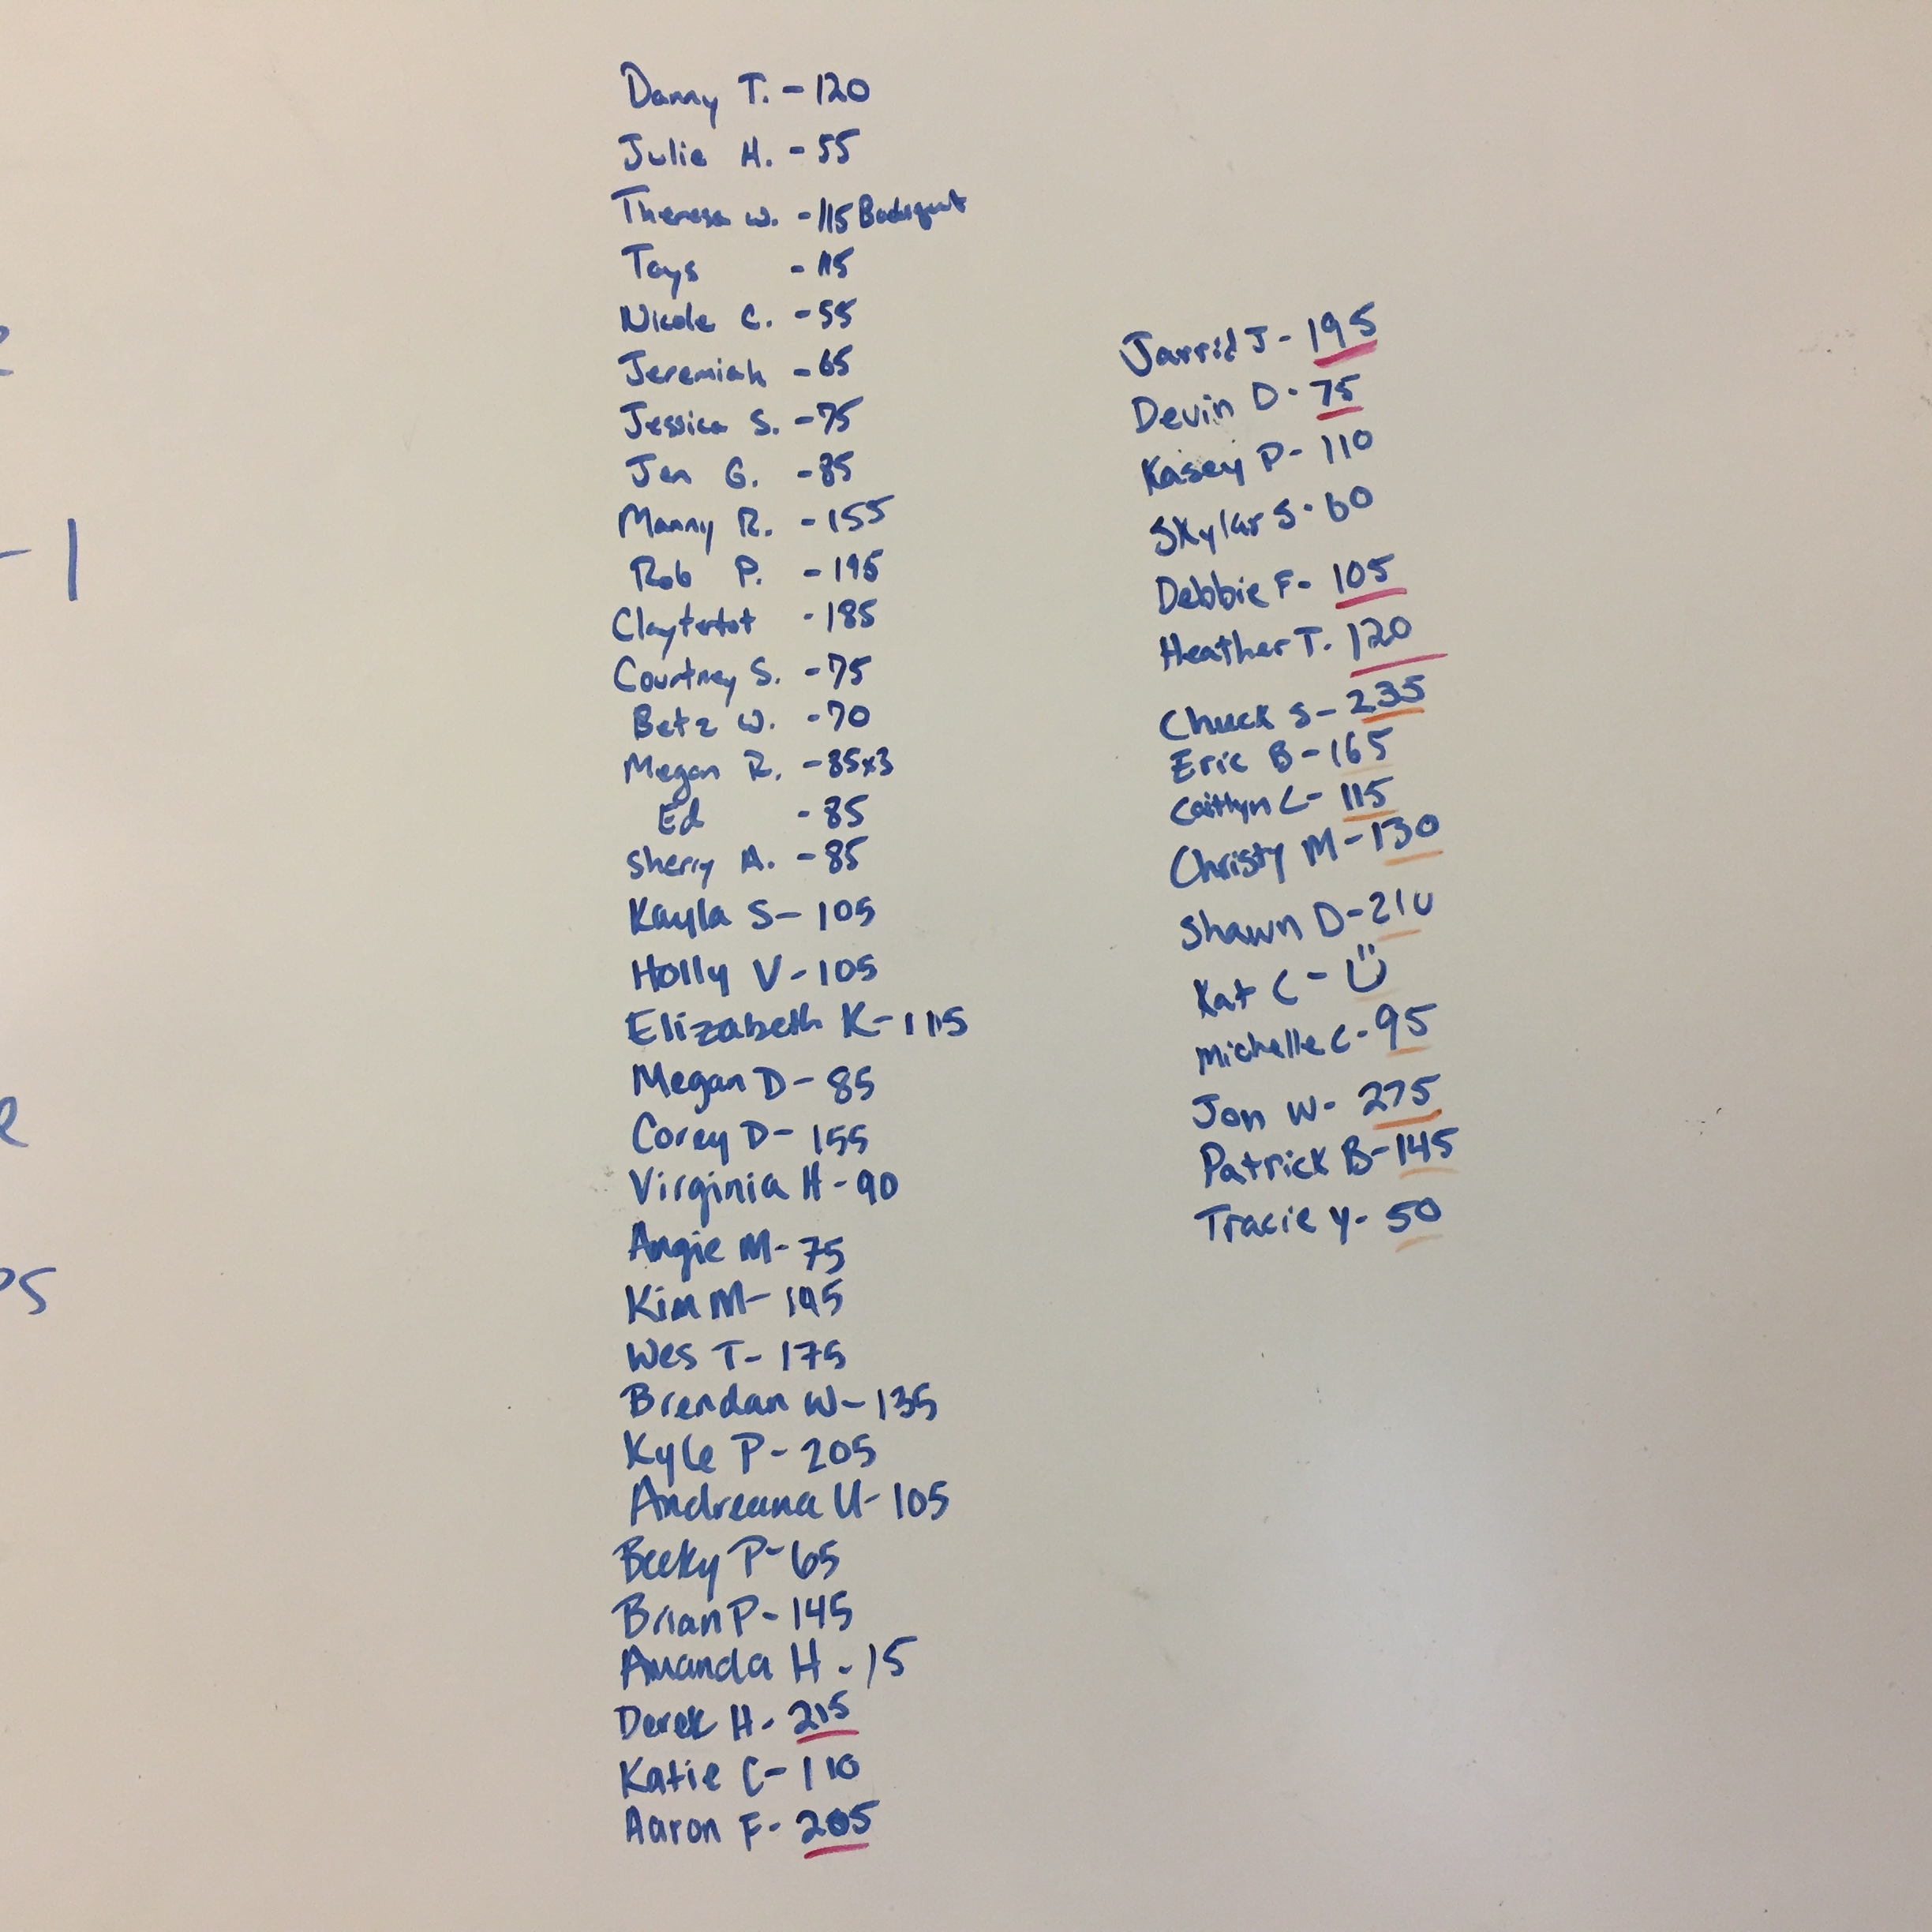 Danny T. - 120
Julie H. - 55
Theresa W. - 115 Backsquat
Tays - 115
Nicole C. - 55
Jeremiah - 65
Jessica S. - 75
Jen G. - 85
Manny R. - 155
Rob P. - 195
Claytertot - 185
Courtney S. - 75
Betz W. - 70
Megan R. - 85x3
Ed - 85
Sherry A. - 85
Kayla S - 105
Holly V - 105
Elizabeth K - 115
Megan D - 85
Corey D - 155
Virginia H - 90
Angie M - 75
Kim M -
Wes T - 175
Brendan W - 135
Kyle P - 205
Andreana U - 105
Becky P - 65
Brian P - 145
Amanda H - 15
Derek H - 215
Katie C - 110
Aaron F - 205
Jarrid J - 195
Devin D - 75
Kasey P - 110
Skylar S - 60
Debbie F - 105
Heather T. 120
Chuck S - 235
Eric B - 165
Caitlyn C - 115
Christy M - 130
Shawn D - 210
Kat C - ü
Michelle C - 95
Jon W - 275
Patrick B - 145
Tracie Y - 50